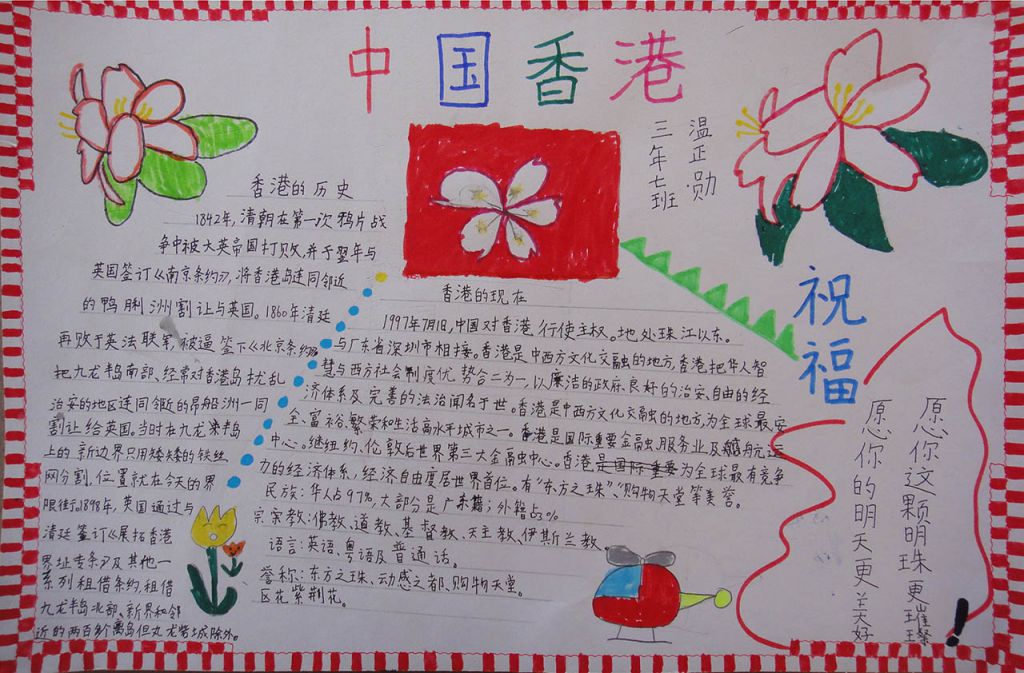 中国香港
温正勋
三年七班
香港的历史
1842年,清朝在第一次鸦片战
争中被大英帝国打败,并于翌年与
英国签订《南京条约》,将香港岛连同邻近
的鸭脷洲割让与英国。1860年清廷
再败于英法联军,被逼签下《北京条约》
把九龙半岛南部、经常对香港岛扰乱
治安的地区连同邻近的昂船洲一同
割让给英国。当时在九龙半岛
上的新边界只用矮矮的铁丝
网分割,位置就在今天的界
限街。1898年,英国通过与
清廷签订《展拓香港
界址专条》及其他一
系列租借条约,租借
九龙半岛北部、新界和邻
近的两百多个离岛但九龙寨城除外。
香港的现在
1997年7月1日,中国对香港行使主权。地处珠江以东。
与广东省深圳市相接。香港是中西方文化交融的地方,香港把华人智
慧与西方社会制度优势合二为一,以廉洁的政府、良好的治安、自由的经
济体系及完善的法治闻名于世。香港是中西方文化交融的地方,为全球最安
全、富裕、繁荣和生活高水平城市之一。香港是国际重要金融、服务业及航运
中心。继纽约、伦敦后世界第三大金融中心。香港是国际重要为全球最有竞争
力的经济体系,经济自由度居世界首位。有“东方之珠”、购物天堂等美誉。
民族:华人占97%大部分是广东籍;外籍占3%
宗教:佛教、道教、基督教、天主教、伊斯兰教、
语言:英语、粤语及普通话。
誉称:东方之珠、动感之都、购物天堂。
区花紫荆花。
祝福
愿你这颗明珠更璀璨
愿你的明天更美好!